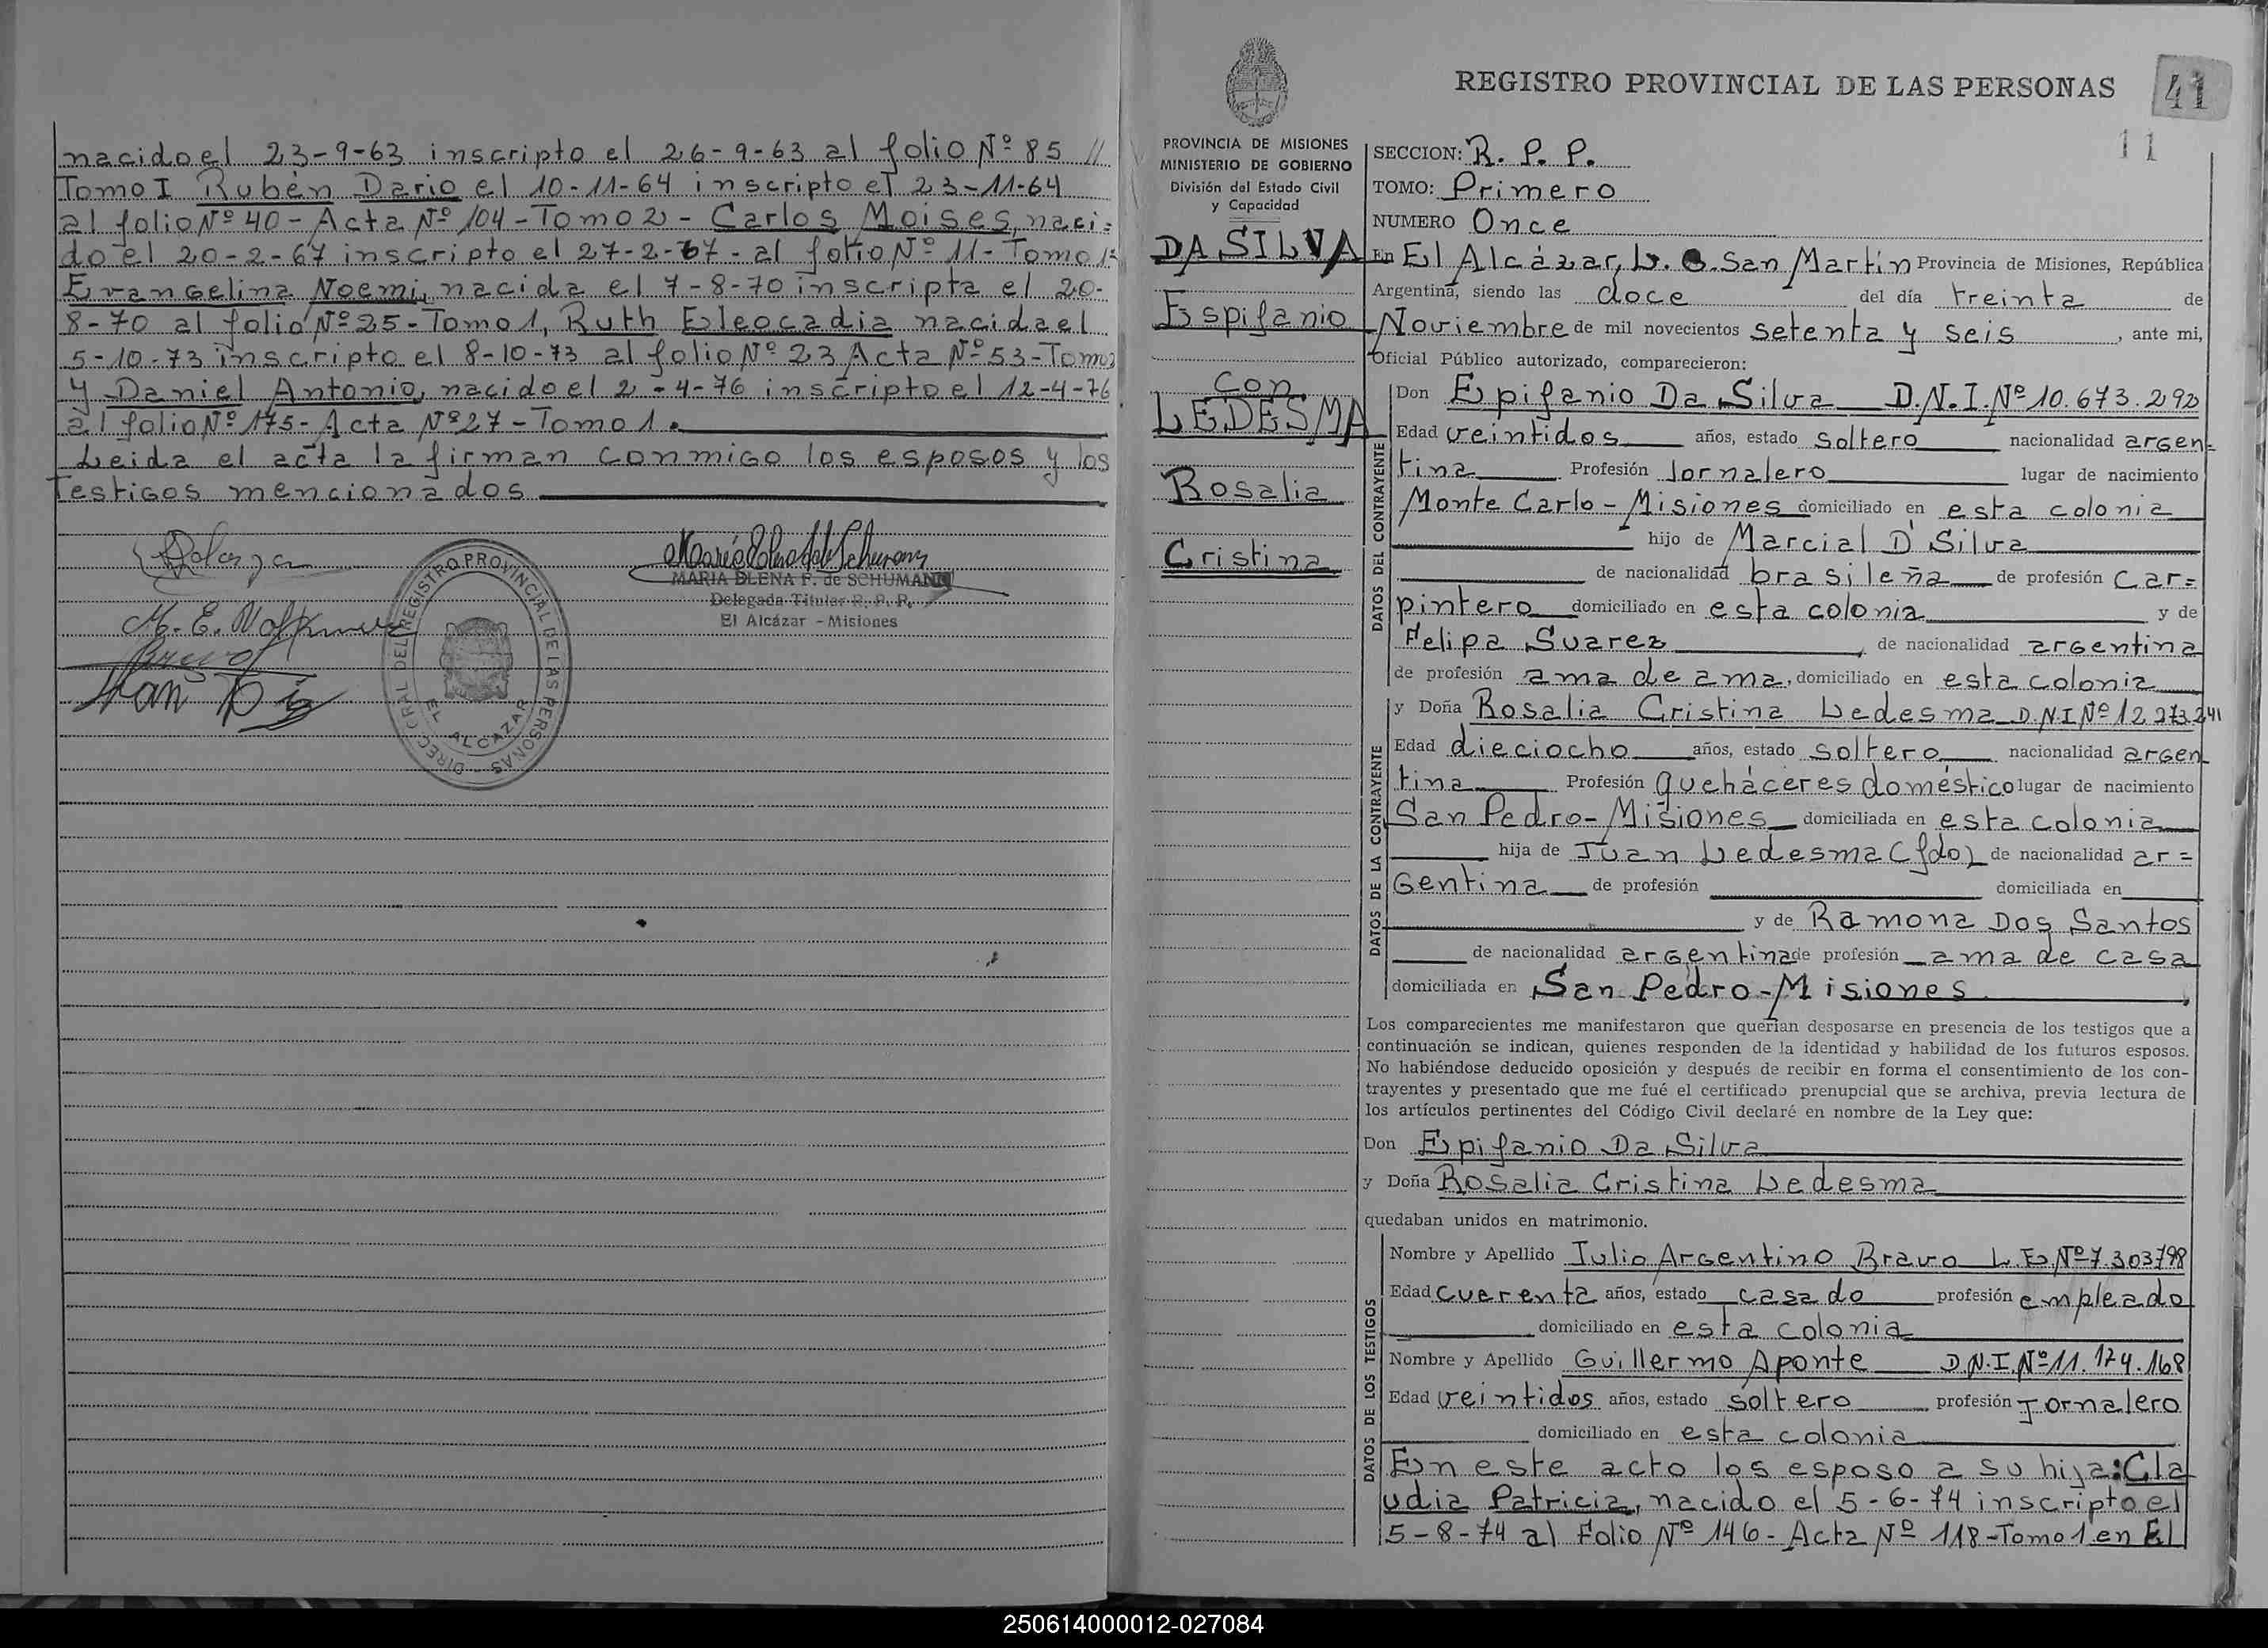 nacido el 23-9-63 inscripto el 26-9-63 al folio Nº 85 //
Tomo I Rubén Dario el 10-11-64 inscripto el 23-11-64
al folio Nº 40 - Acta Nº 104 - Tomo 2 - Carlos Moises, naci=
do el 20-2-67 inscripto el 27-2-67 - al folio Nº 11 - Tomo 1=
Evangelina Noemi, nacida el 7-8-70 inscripta el 20-
8-70 al folio Nº 25 - Tomo 1, Ruth Eleocadia nacida el
5-10-73 inscripto el 8-10-73 al folio Nº 23 Acta Nº 53 - Tomo
y Daniel Antonio, nacido el 2-4-76 inscripto el 12-4-76
al folio Nº 175 - Acta Nº 27 - Tomo 1.
Leida el acta la firman conmigo los esposos y los
testigos mencionados
MARIA ELENA F. de SCHUMANN
Delegada Titular R. P. P.
El Alcázar - Misiones
DIREC. GRAL. DEL REGISTRO PROVINCIAL DE LAS PERSONAS
EL ALCAZAR
REGISTRO PROVINCIAL DE LAS PERSONAS
41
11
PROVINCIA DE MISIONES
MINISTERIO DE GOBIERNO
División del Estado Civil
y Capacidad
DA SILVA
Espifanio
con
LEDESMA
Rosalia
Cristina
SECCION: R. P. P.
TOMO: Primero
NUMERO Once
En El Alcázar, L. G. San Martín Provincia de Misiones, República
Argentina, siendo las doce del día treinta de
Noviembre de mil novecientos setenta y seis, ante mi,
Oficial Público autorizado, comparecieron:
DATOS DEL CONTRAYENTE
Don Epifanio Da Silva D.N.I. Nº 10.673.292
Edad veintidos años, estado soltero nacionalidad argen=
tina Profesión Jornalero lugar de nacimiento
Monte Carlo - Misiones domiciliado en esta colonia
hijo de Marcial D' Silva
de nacionalidad brasileña de profesión car=
pintero domiciliado en esta colonia y de
Felipa Suarez, de nacionalidad argentina
de profesión ama de ama, domiciliado en esta colonia
DATOS DE LA CONTRAYENTE
y Doña Rosalia Cristina Ledesma D.N.I Nº 12.273.241
Edad dieciocho años, estado soltero nacionalidad argen
tina Profesión quehaceres doméstico lugar de nacimiento
San Pedro - Misiones domiciliada en esta colonia
hija de Juan Ledesma (fdo) de nacionalidad ar=
gentina de profesión domiciliada en
y de Ramona Dos Santos
de nacionalidad argentina de profesión ama de casa
domiciliada en San Pedro - Misiones,
Los comparecientes me manifestaron que querían desposarse en presencia de los testigos que a
continuación se indican, quienes responden de la identidad y habilidad de los futuros esposos.
No habiéndose deducido oposición y después de recibir en forma el consentimiento de los con-
trayentes y presentado que me fué el certificado prenupcial que se archiva, previa lectura de
los artículos pertinentes del Código Civil declaré en nombre de la Ley que:
Don Epifanio Da Silva
y Doña Rosalia Cristina Ledesma
quedaban unidos en matrimonio.
DATOS DE LOS TESTIGOS
Nombre y Apellido Julio Argentino Bravo L.E. Nº 7.303798
Edad cuarenta años, estado casado profesión empleado
domiciliado en esta colonia
Nombre y Apellido Guillermo Aponte D.N.I. Nº 11.174.168
Edad veintidos años, estado soltero profesión Jornalero
domiciliado en esta colonia
En este acto los esposo a su hija: Cla
udia Patricia, nacido el 5-6-74 inscripto el
5-8-74 al Folio Nº 146 - Acta Nº 118 - Tomo 1 en El
250614000012-027084